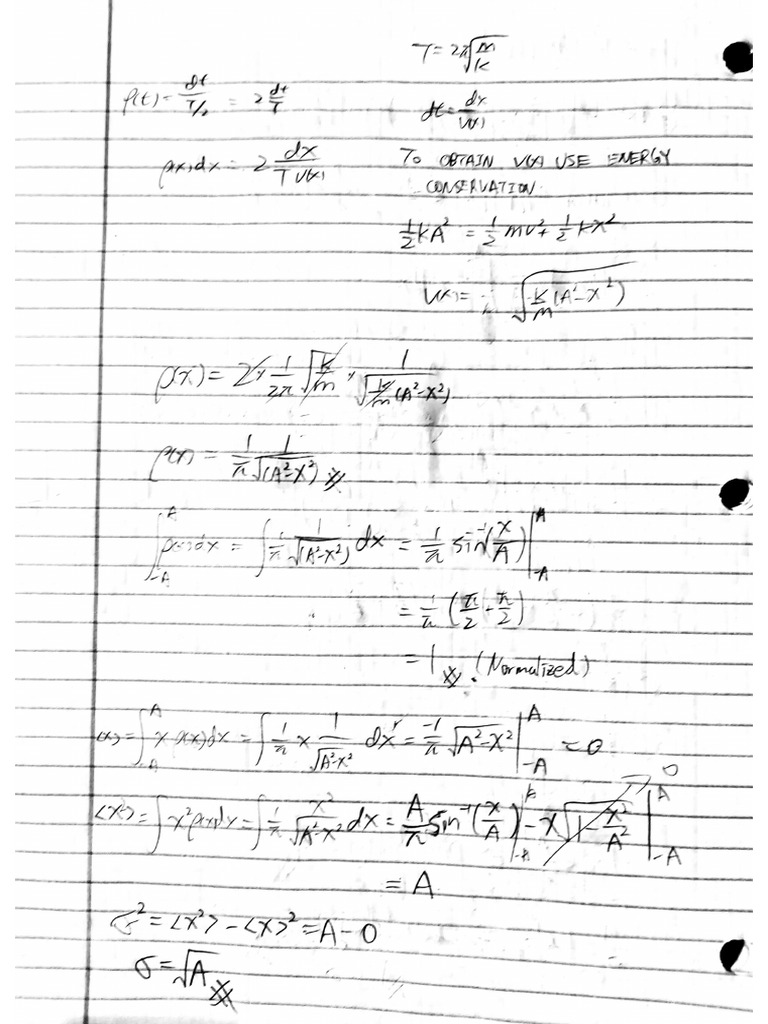 T = 2π√(m/k)
ρ(t) = dt/(T/2) = 2 dt/T
dt = dx/v(x)
ρ(x)dx = 2 dx/(T v(x))
TO OBTAIN V(x) USE ENERGY
CONSERVATION
1/2 kA² = 1/2 mv² + 1/2 kx²
v(x) = √(k/m (A²-x²))
ρ(x) = 2 × 1/(2π) √(k/m) × 1/√(k/m (A²-x²))
ρ(x) = 1/π 1/√(A²-x²)
∫_{-A}^{A} ρ(x)dx = ∫ 1/π 1/√(A²-x²) dx = 1/π sin⁻¹(x/A) |_{-A}^{A}
= 1/π (π/2 + π/2)
= 1 . (Normalized)
⟨x⟩ = ∫_{-A}^{A} x ρ(x)dx = ∫ 1/π x 1/√(A²-x²) dx = -1/π √(A²-x²) |_{-A}^{A} = 0
⟨x²⟩ = ∫ x²ρ(x)dx = ∫ 1/π x²/√(A²-x²) dx = A/π sin⁻¹(x/A) |_{-A}^{A} - x√(1-x²/A²) |_{-A}^{A} 0
= A
σ² = ⟨x²⟩ - ⟨x⟩² = A - 0
σ = √A